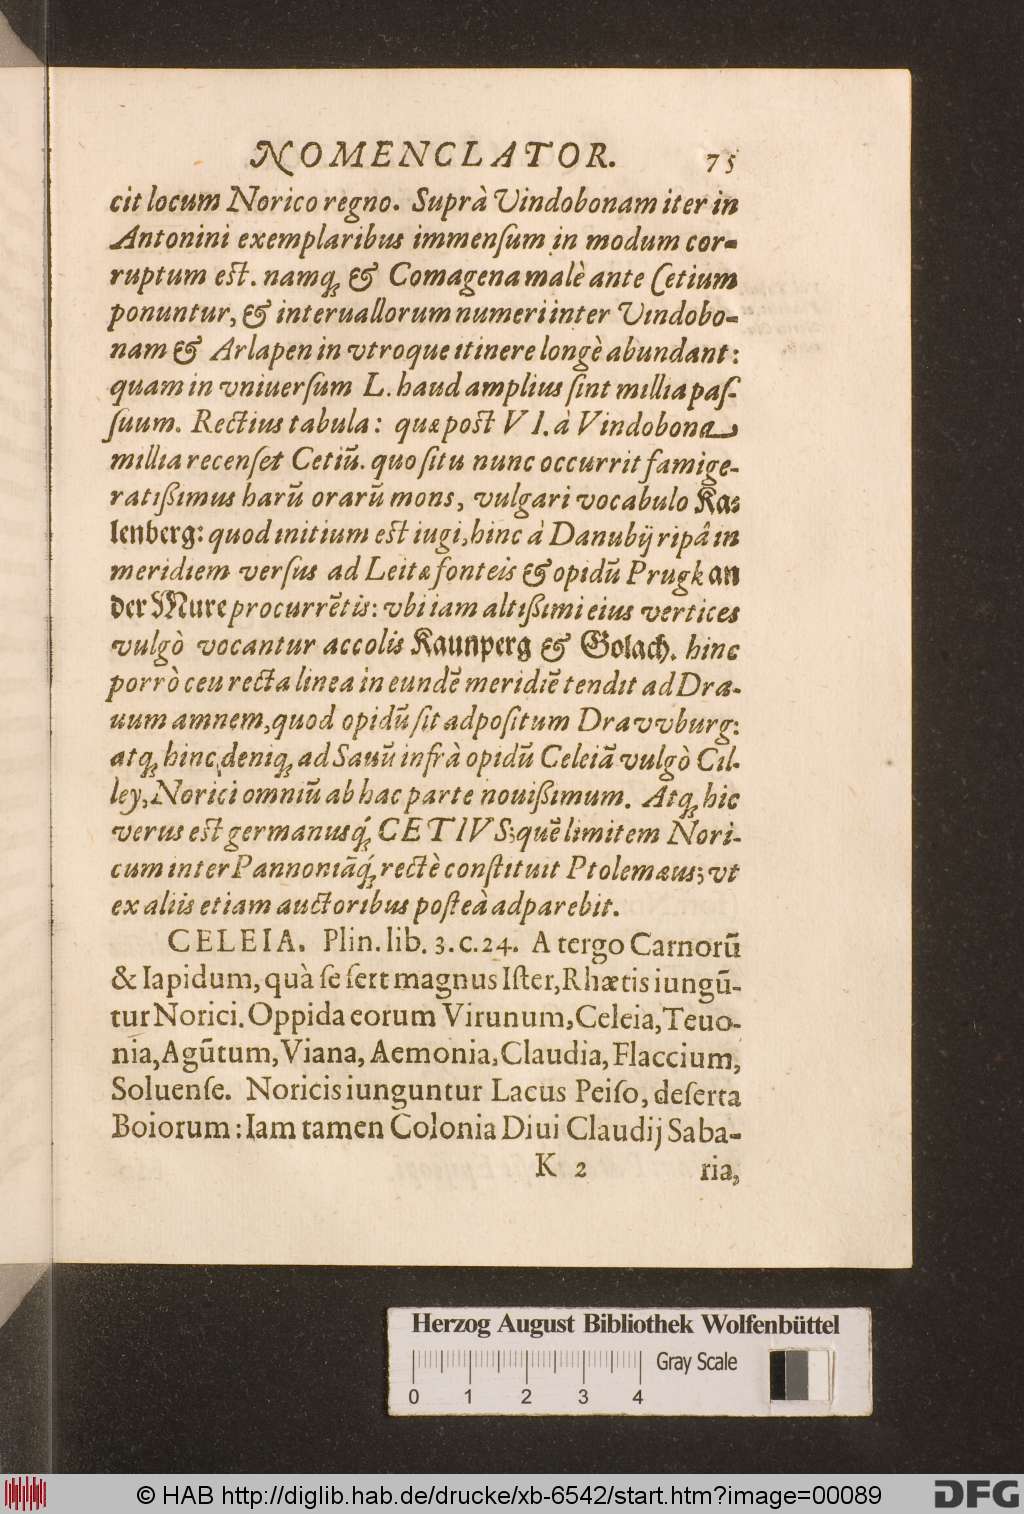 NOMENCLATOR. 75
cit locum Norico regno. Suprà Vindobonam iter in
Antonini exemplaribus immenſum in modum cor-
ruptum eſt. namq́; & Comagena malè ante Cetium
ponuntur, & interuallorum numeri inter Vindobo-
nam & Arlapen in vtroque itinere longè abundant:
quam in vniuerſum L. haud amplius ſint millia paſ-
ſuum. Rectius tabula: quæ post VI. à Vindobona
millia recenſet Cetiū. quo ſitu nunc occurrit famige-
ratißimus harū orarū mons, vulgari vocabulo Ka-
lenberg: quod initium eſt iugi, hinc à Danubij ripâ in
meridiem verſus ad Leitæ fonteis & opidū Prugk an
der Mure procurrētis: vbi iam altißimi eius vertices
vulgò vocantur accolis Kaunperg & Golach. hinc
porrò ceu recta linea in eundē meridiē tendit ad Dra-
uum amnem, quod opidū ſit adpoſitum Dravvburg:
atq; hinc deniq; ad Sauū infrà opidū Celeiā vulgò Cil-
ley, Norici omniū ab hac parte nouißimum. Atq; hic
verus eſt germanusq́; CETIVS; quē limitem Nori-
cum inter Pannoniāq́; rectè conſtituit Ptolemæus; vt
ex aliis etiam auctoribus poſteà adparebit.
CELEIA. Plin. lib. 3. c. 24. A tergo Carnorū
& Iapidum, quà ſe fert magnus Iſter, Rhætis iungū-
tur Norici. Oppida eorum Virunum, Celeia, Teuo-
nia, Agūtum, Viana, Aemonia, Claudia, Flaccium,
Soluenſe. Noricis iunguntur Lacus Peiſo, deſerta
Boiorum: Iam tamen Colonia Diui Claudij Saba-
K 2 ria,
Herzog August Bibliothek Wolfenbüttel
Gray Scale
0 1 2 3 4
© HAB http://diglib.hab.de/drucke/xb-6542/start.htm?image=00089
DFG